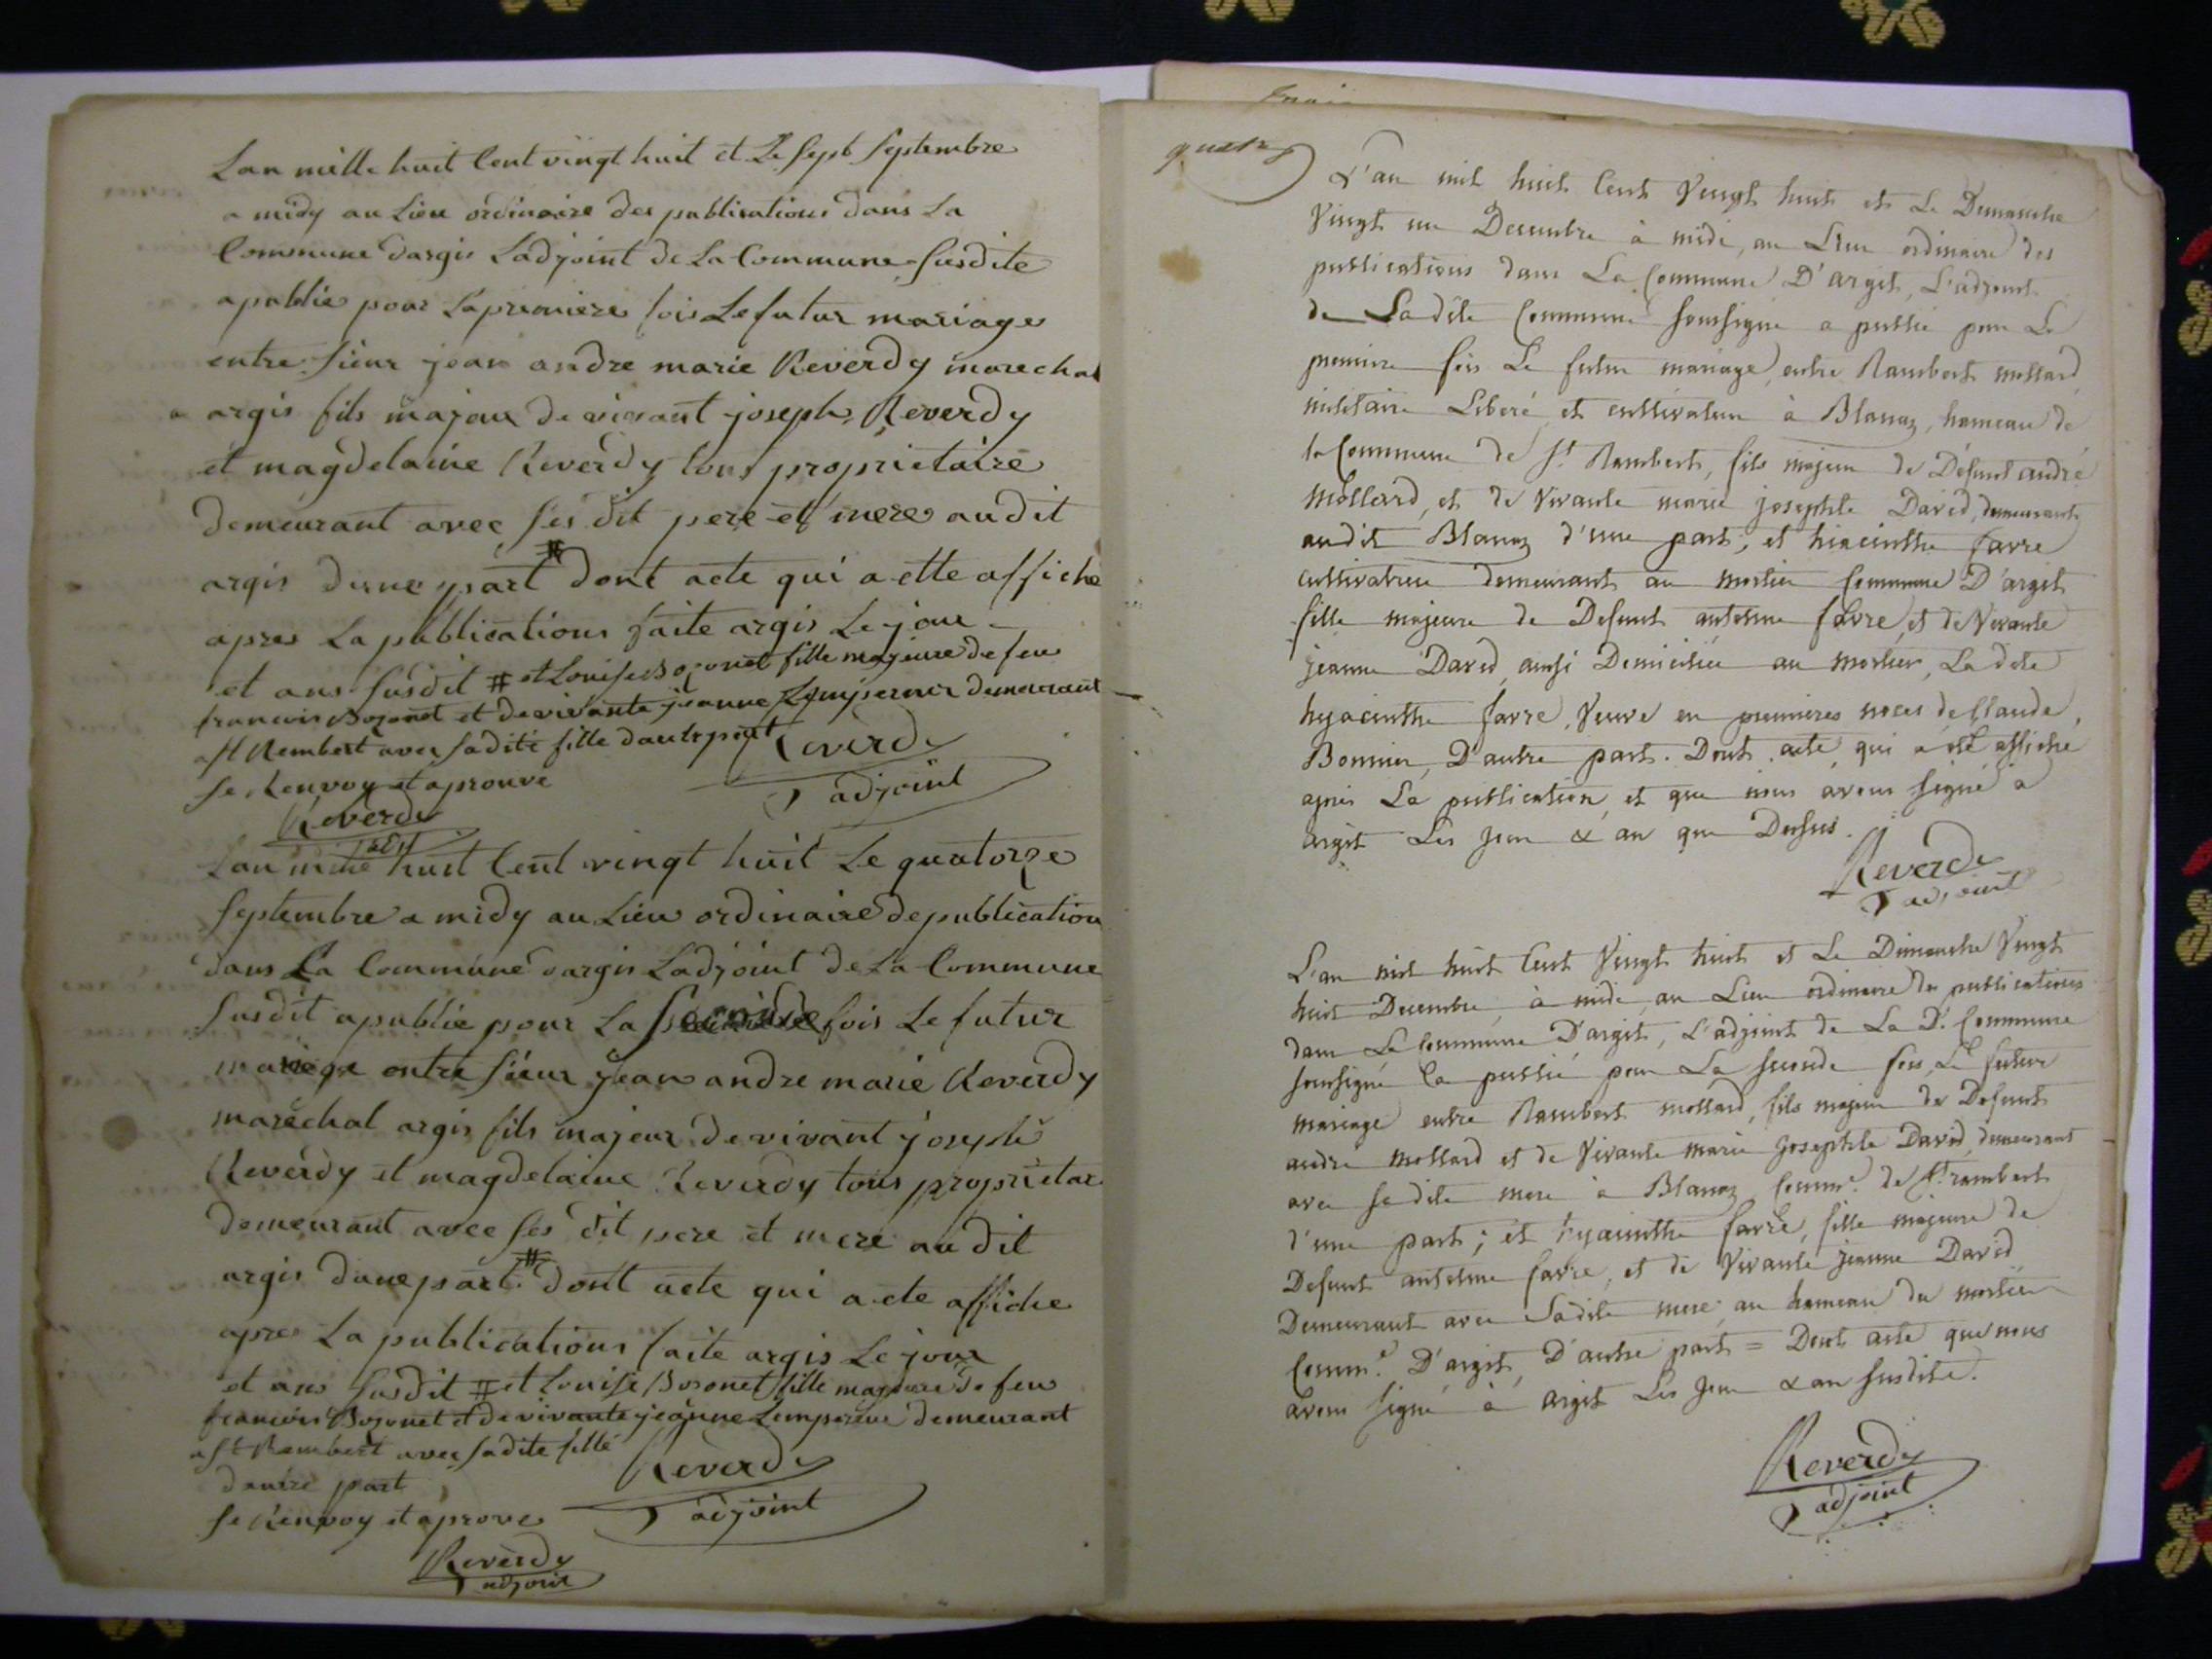 Lan mille huit Cent vingt huit et Le sept septembre
a midy au Lieu ordinaire des publications dans La
Commune dargis Ladjoint de La Commune susdite
a publie pour La premiere fois Le futur mariage
entre sieur jean andre marie Reverdy marechal
a argis fils majeur de vivant joseph Reverdy
et magdelaine Reverdy tous proprietaire
demeurant avec ses dit pere et mere audit
argis dune part # dont acte qui a ette affiche
apres La publications faite argis Le jour
et ans susdit # et Louise Bozonet fille majeure de feu
francois Bozonet et de vivante jeanne Lempereur demeurant
a st Rembert avec sadite fille dautre part
se Renvoy et aprouve
Reverdy
adjoint
Reverdy
adj
Lan mille huit Cent vingt huit Le quatorze
septembre a midy au Lieu ordinaire de publication
dans La Commune dargis Ladjoint de La Commune
susdit a publie pour La seconde fois Le futur
mariage entre sieur jean andre marie Reverdy
maréchal argis fils majeur de vivant joseph
Reverdy et magdelaine Reverdy tous proprietar
demeurant avec ses dit pere et mere au dit
argis dune part # dont acte qui a ete affiche
apres La publications faite argis Le jour
et ans susdit # et Louise Bozonet fille majeure de feu
francois Bozonet et de vivante jeanne Lempereur demeurant
a st Rambert avec sadite fille
dautre part
se Renvoy et aprove
Reverdy
adjoint
Reverdy
adjoint
quatre
L'an mil huit Cent Vingt huit et Le Dimanche
Vingt un Decembre à midi, au Lieu ordinaire des
publications dans La Commune D'argit, L'adjoint
de La dite Commune soussigné a publié pour La
premiere fois Le futur mariage, entre Rambert mollard
militaire Liberé et cultivateur à Blanaz, hameau de
la Commune de St Rambert, fils majeur de Défunt andré
Mollard, et de Vivante marie josephte David, demeurante
audit Blanaz d'une part, et hiacinthe favre
cultivatrice demeurant au mortier Commune D'argit
fille majeure de Defunt antelme favre et de Vivante
jeanne David, aussi Domiciliée au mortier, La dite
hyacinthe favre, Veuve en premières noces de Claude
Bonnier, D'autre part. Dont acte, qui a été affiché
après La publication, et que nous avons signé à
argit Les jour & an que Dessus.
Reverdy
adjoint
L'an mil huit Cent Vingt huit et Le Dimanche Vingt
huit Decembre, à midi, au Lieu ordinaire des publications
dans La Commune D'argit, L'adjoint de La De. Commune
soussigné a publié pour La seconde fois, Le futur
mariage entre Rambert mollard, fils majeur de Defunt
andré mollard et de Vivante marie Josephte David, demeurant
avec sa dite mere à Blanaz Comme. de St. rambert
d'une part; et hyacinthe favre, fille majeure de
Defunt antelme favre, et de Vivante jeanne David
Demeurant avec Sadite mere, au hameau du mortier
Comme. D'argit, D'autre part = Dont acte que nous
avons signé à argit Les jour & an susdits.
Reverdy
adjoint